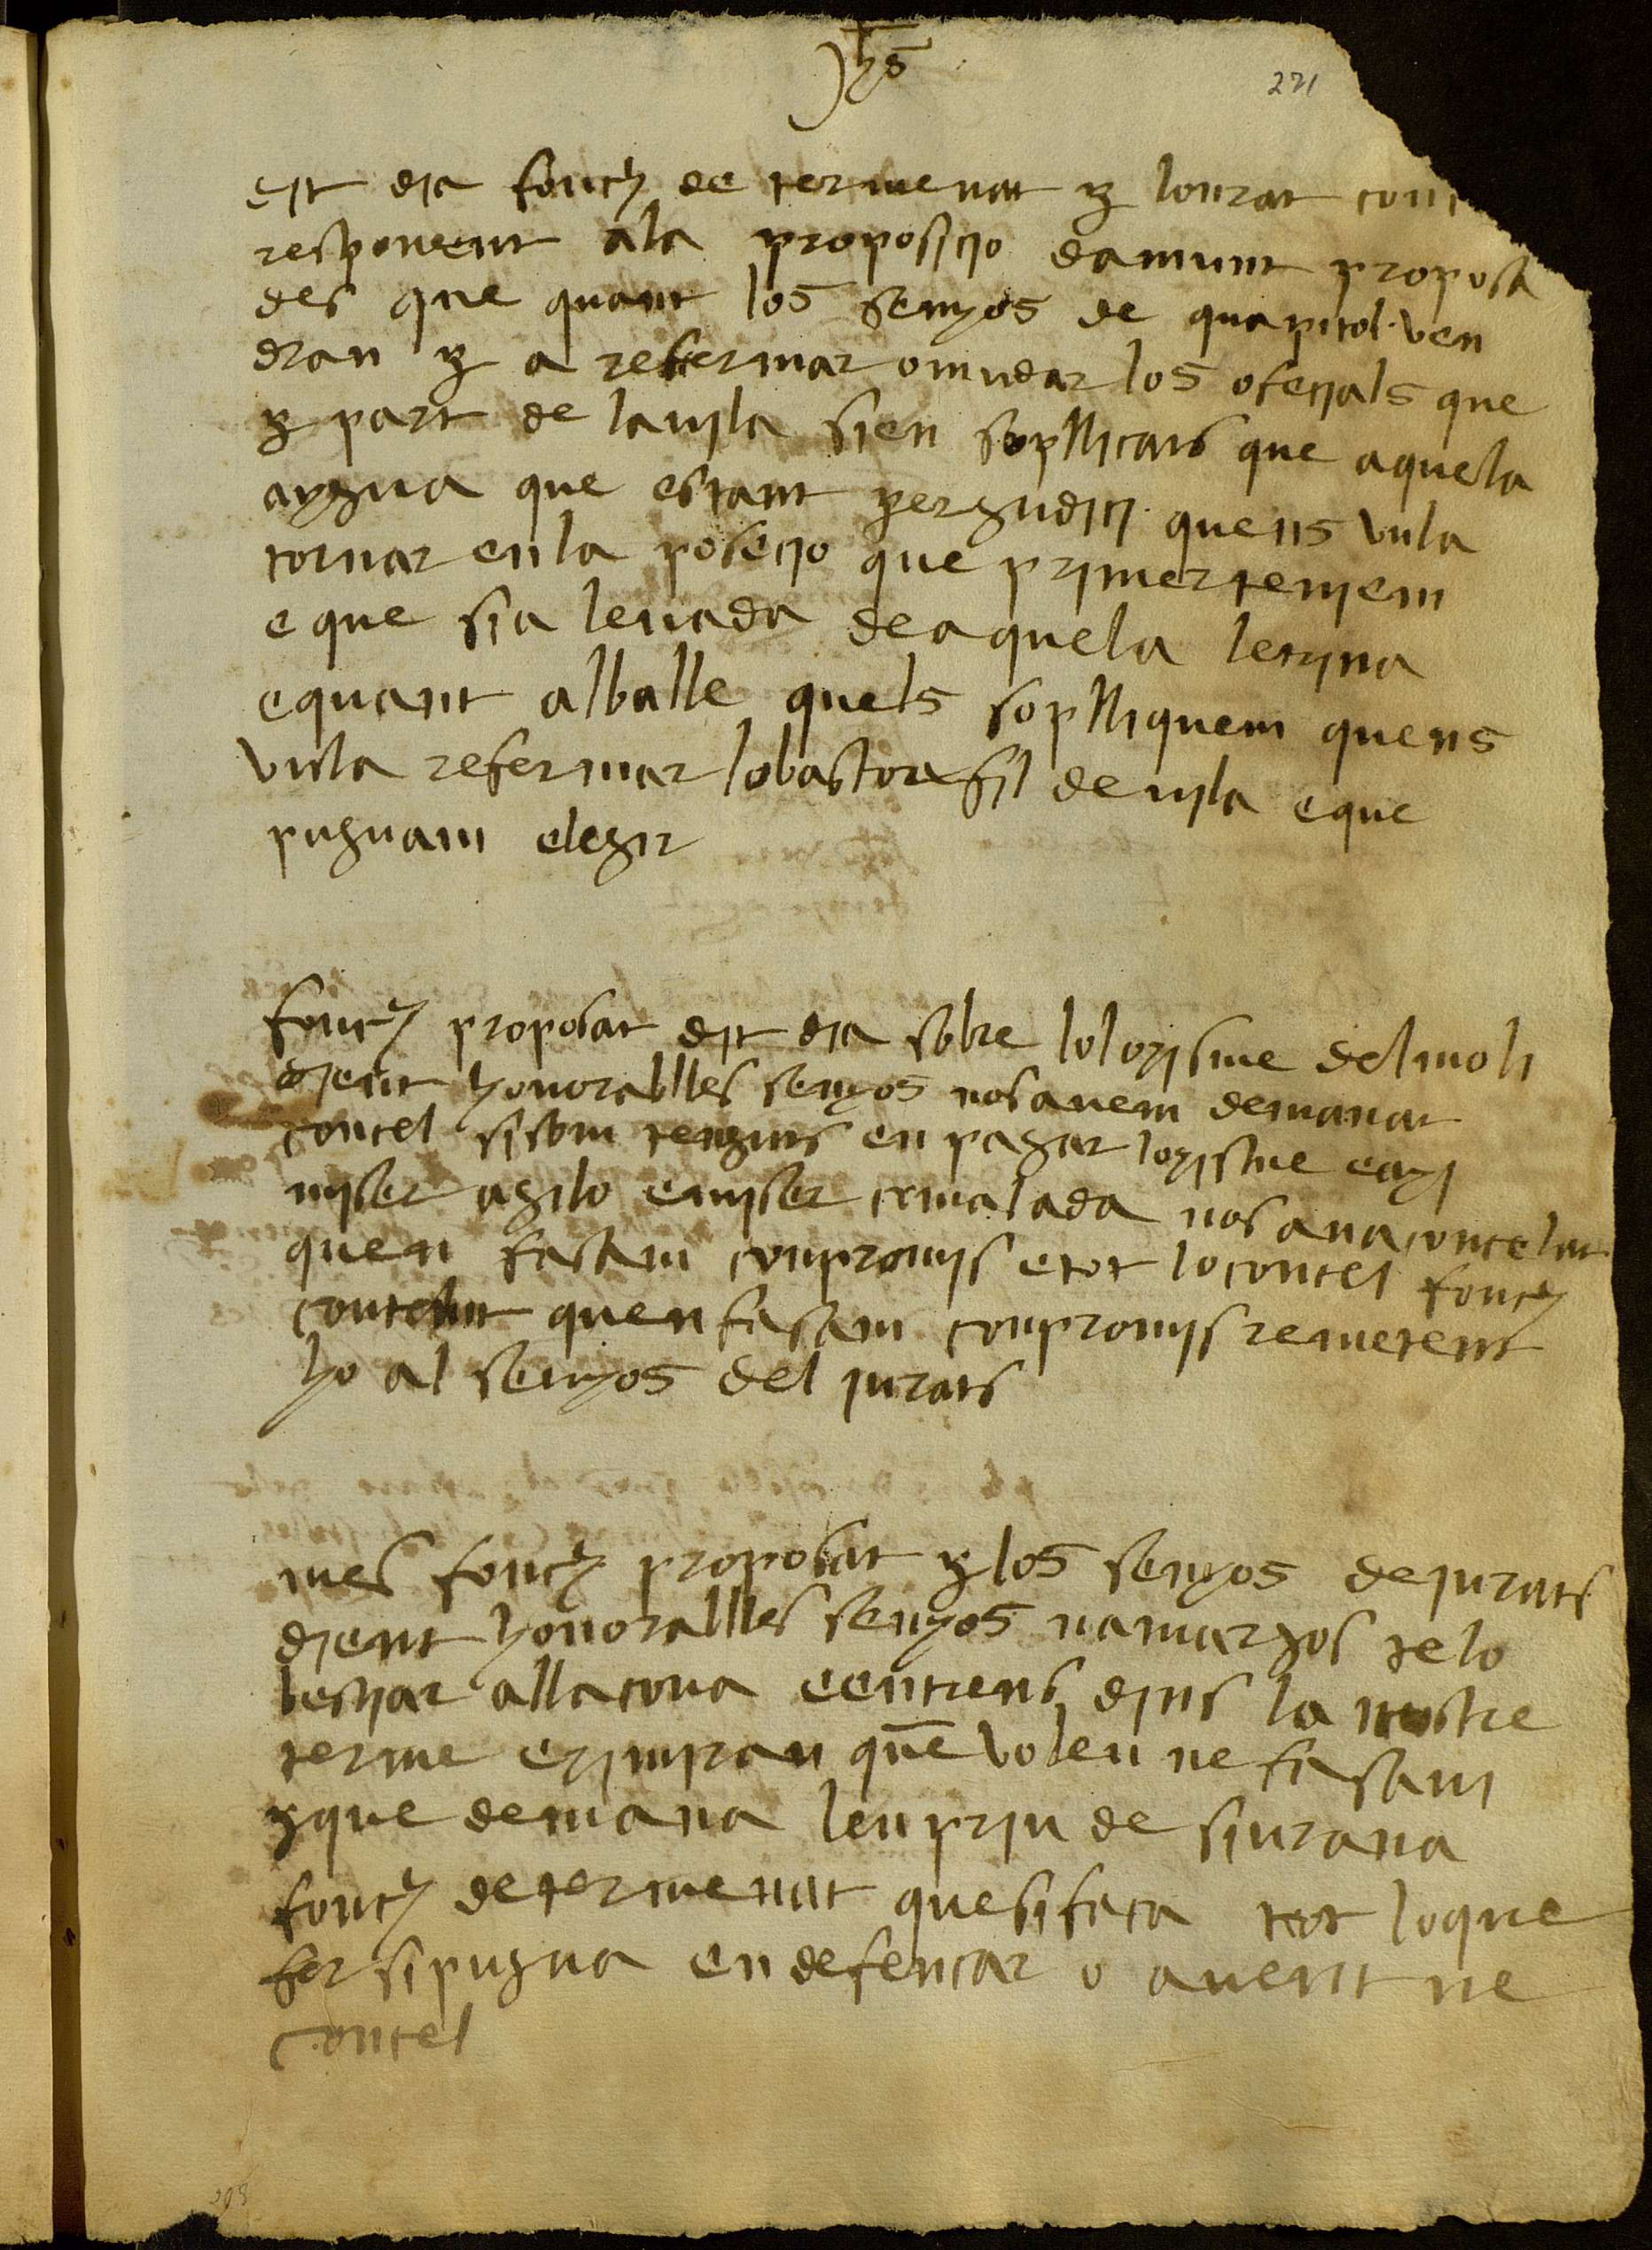 Jhs
271
dit dia fonch de termenat p lonrat con
responent ala proposicio damunt proposa
des que quant los senyos de quapitol ven
dran p a refermar omudar los oficials que
p part de lavila sien sopllicats que aquela
aygua que estant pergudici quens vula
tornar enla posecio que primer teniem
e que sia levada de aquela lecyna
equant alballe quels soplliquem quens
vula refermar lobastorer fil de vila e que
pugnam elegir
fonch proposat dit dia sobre lo loysme delmoli
dient honorablles senyos nosavem demanat
concel si som tenguts en pagar loysme eayi
miser agilo emiser cmalada nos ana concelat
quen fasam conpromis e tot lo concel fonch
concelat quen fasam conpromis remetent
ho al senyos del jurats
mes fonch proposat p los senyos de jurats
dient honorablles senyos namargos te lo
bestiar alla cova e entrens dins la nostre
terme que volen ne fasam
p que demana lenpriu de siurana
fonch determenat quesifaca tot loque
fer sipugna en defencar o avent ne
concel